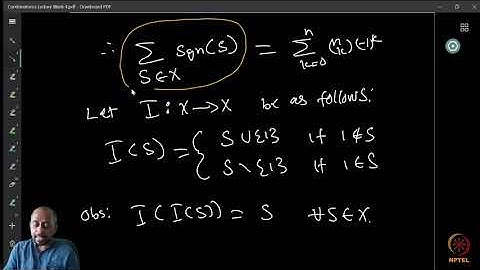 Combinatorics Lecture Week 4.pdf - Drawboard PDF
∴ ∑_{S∈X} sgn(S) = ∑_{k=0}^{n} (n k) (-1)^k
Let I : X → X be as follows:
I(S) = { S ∪ {1} if 1 ∉ S
S \ {1} if 1 ∈ S
Obs: I(I(S)) = S ∀ S ∈ X.
NPTEL